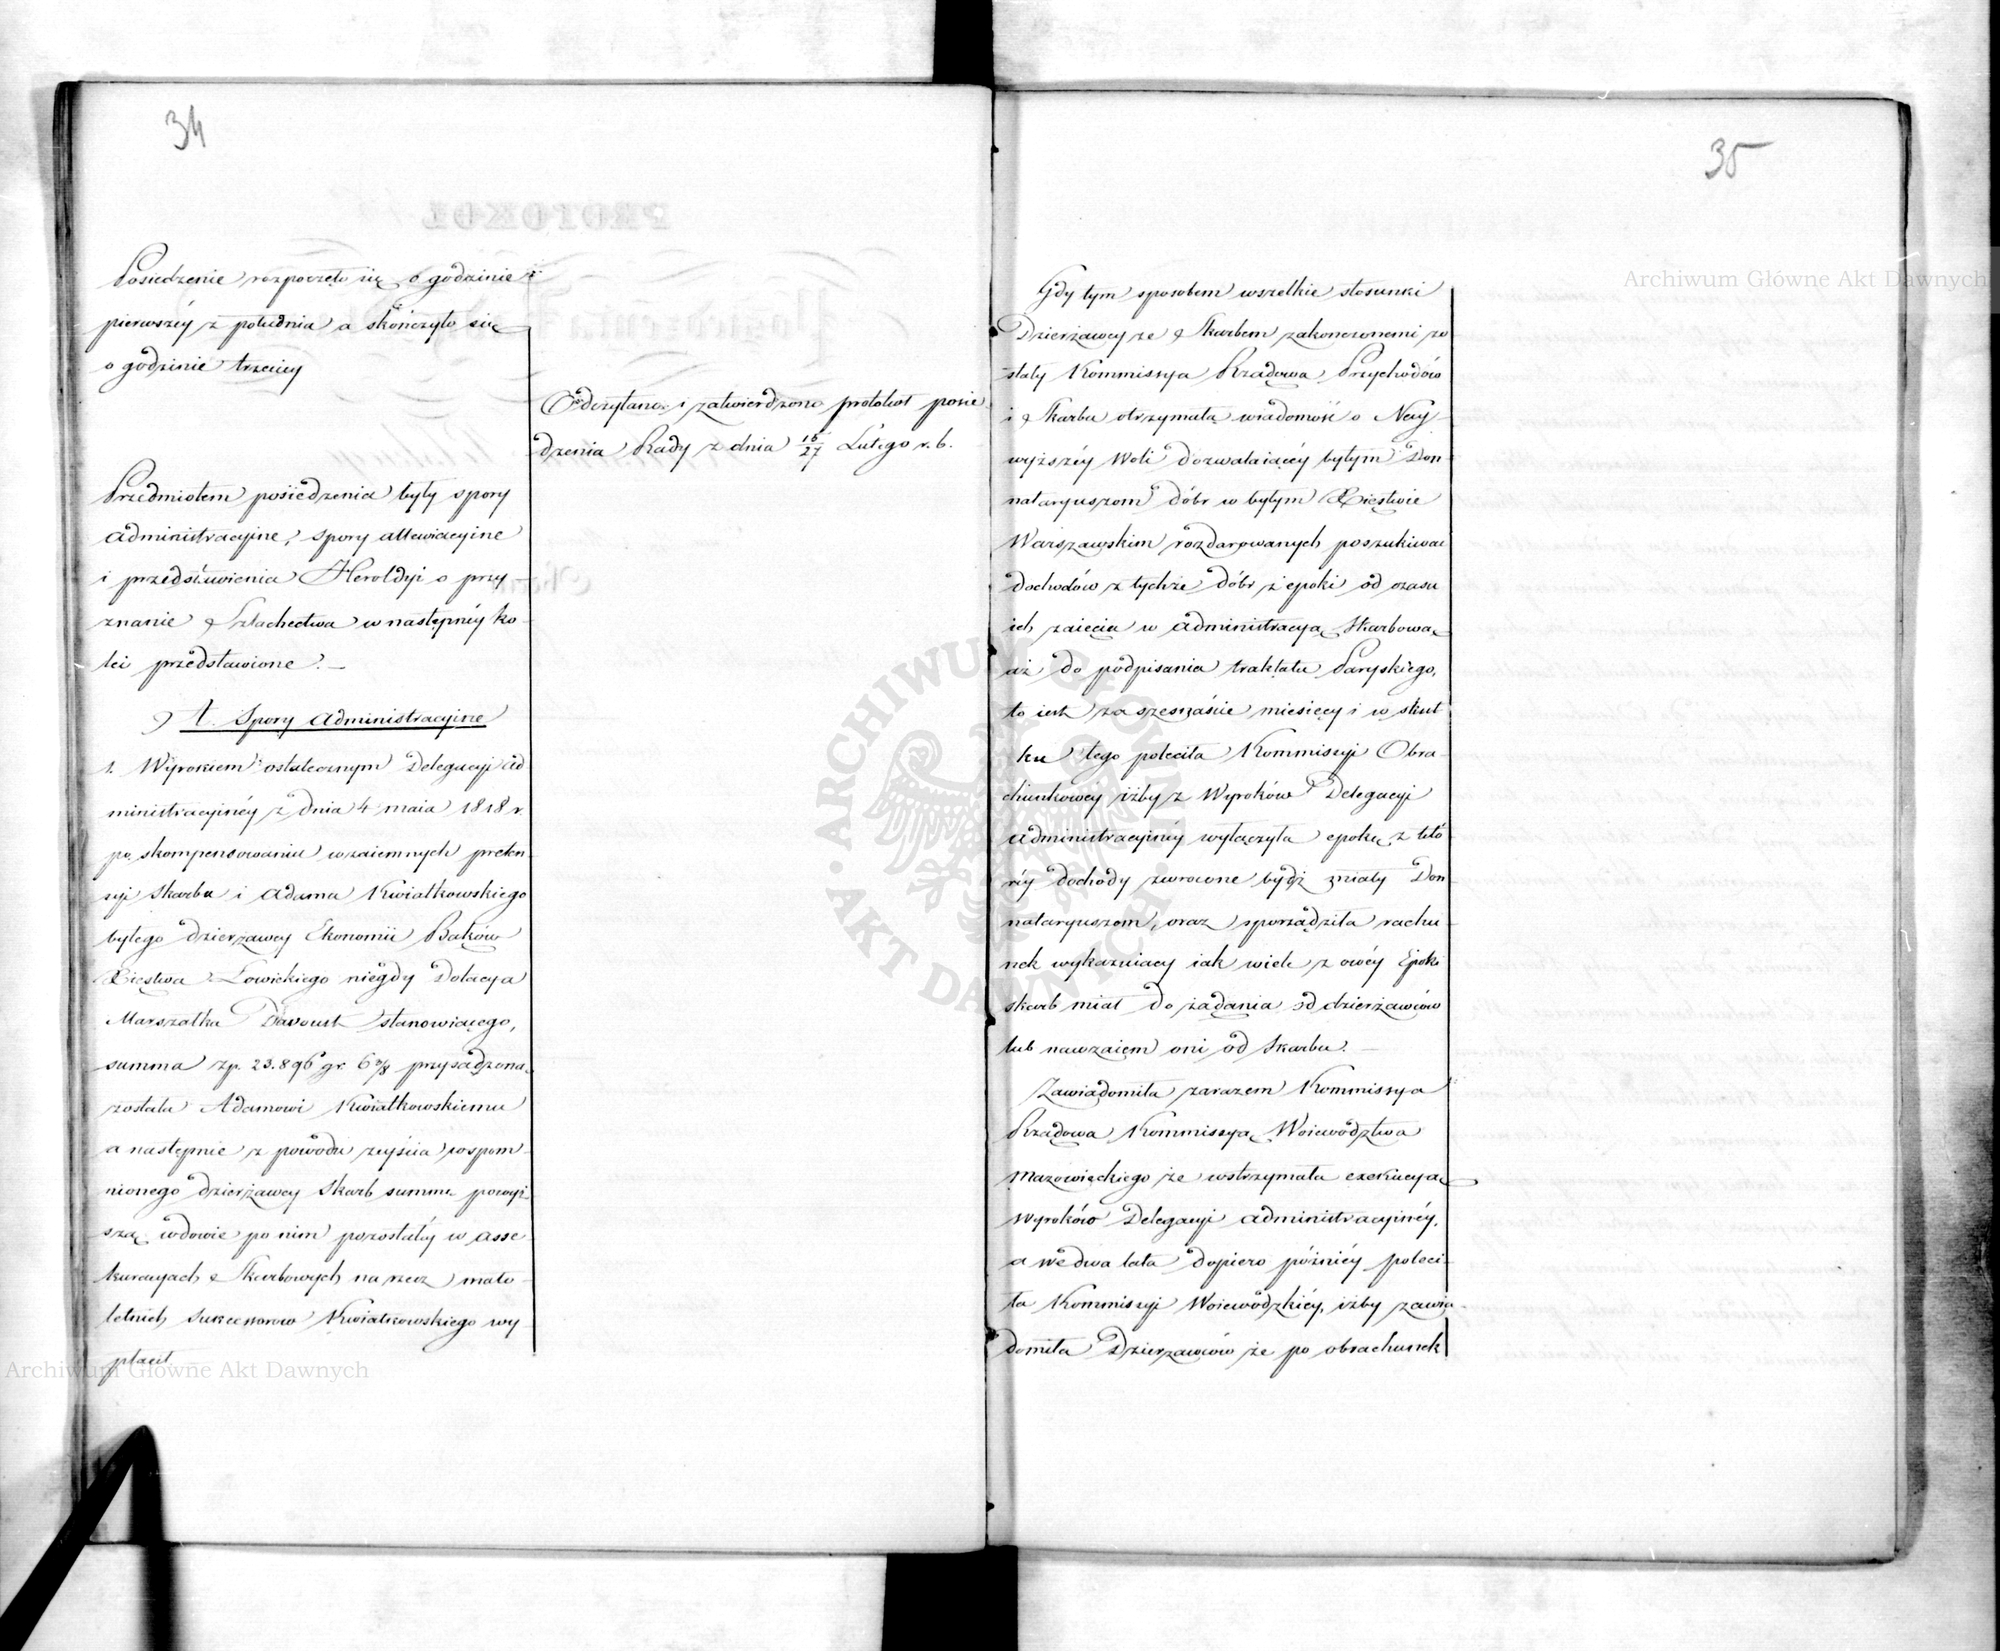 34
Posiedzenie rozpoczęło się o godzinie
pierwszéy z południa a skończyło się
o godzinie trzeciey
Odczytano i zatwierdzono protokół posie
dzenia Rady z dnia 15/27 Lutego r. b.
Przedmiotem posiedzenia były spory
administracyjne, spory attewiacyine
i przedstawienia Heroldyi o przy
znanie Szlachectwa w następnéy ko-
lei przedstawione. —
A. Spory administracyjne
1. Wyrokiem ostatecznym Delegacyi ad
ministracyinéy z dnia 4 maia 1818 r.
po skompensowaniu wzaiemnych preten-
syi Skarbu i Adama Kwiatkowskiego
byłego dzierżawcy Ekonomii Bąków
Xięstwa Łowickiego niegdy Dotacya
Marszałka Davoust stanowiącego,
summa zp. 23.896 gr. 6 3/8 przysądzona
została Adamowi Kwiatkowskiemu
a następnie z powodu zeyścia wspom-
nionego dzierżawcy Skarb summę powyż-
szą wdowie po nim pozostałéy w asse
kuracyach Skarbowych na rzecz mało-
letnich Sukcessorów Kwiatkowskiego wy
płacił
35
Gdy tym sposobem wszelkie stosunki
Dzierżawcy ze Skarbem zakonczonemi zo
stały Kommissya Rządowa Przychodów
i Skarbu otrzymała wiadomość o Nay-
wyższéy Woli dozwalaiącéy byłym Don
nataryuszom dóbr w byłym Xięstwie
Warszawskim rozdarowanych poszukiwać
dochodów z tychże dóbr z epoki od czasu
ich zaięcia w administracyą Skarbową
aż do podpisania traktatu Paryskiego,
to iest za szesnaście miesięcy i w skut
ku tego poleciła Kommissyi Obra-
chunkowéy iżby z Wyroków Delegacyi
administracyinéy wyłączyła epokę z któ
réy dochody zwrocone bydź miały Don
nataryuszom, oraz sporządziła rachu
nek wykazuiący iak wiele z owéy Epoki
skarb miał do żądania od dzierżawców
lub nawzaiem oni od Skarbu. —
Zawiadomiła zarazem Kommissya
Rządowa Kommissyą Woiewództwa
Mazowieckiego że wstrzymała exekucyą
Wyroków Delegacyi administracyinéy,
a we dwa lata dopiero późniéy poleci-
ła Kommissyi Woiewódzkiéy, iżby zawia-
domiła Dzierzawców że po obrachunek
Archiwum Główne Akt Dawnych
Archiwum Główne Akt Dawnych
· ARCHIWUM GŁÓWNE · AKT DAWNYCH